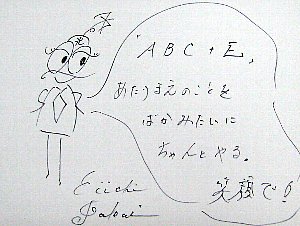 「ABC+E」
あたりまえのことを
ばかみたいに
ちゃんとやる。
笑顔で!
Eiichi